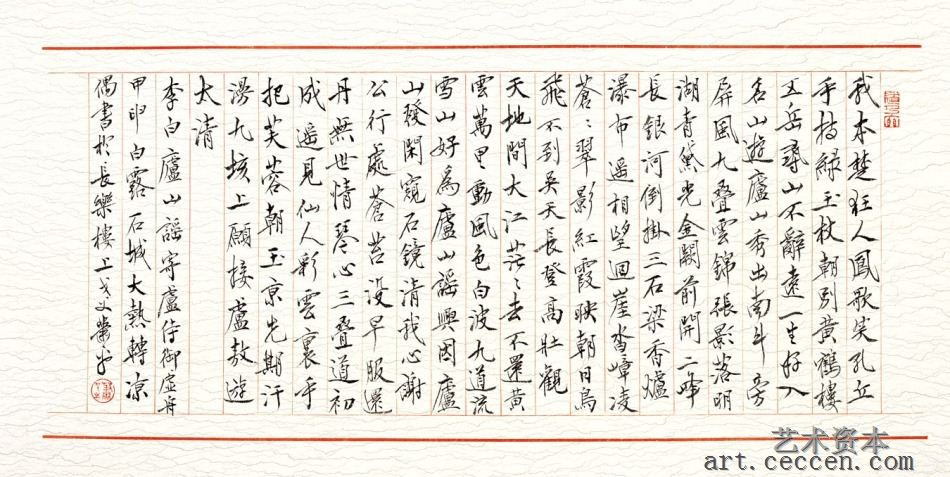 我本楚狂人鳳歌笑孔丘
手持緑玉杖朝別黃鶴樓
五岳尋山不辭遠一生好入
名山遊廬山秀出南斗旁
屏風九叠雲錦張影落明
湖青黛光金闕前開二峰
長銀河倒掛三石梁香爐
瀑布遥相望迴崖沓嶂凌
蒼〻翠影紅霞映朝日鳥
飛不到吴天長登高壮觀
天地間大江茫〻去不還黄
雲萬里動風色白波九道流
雪山好為廬山謡興因廬
山發閑窺石鏡清我心謝
公行處蒼苔没早服還
丹無世情琴心三叠道初
成遥見仙人彩雲裏手
把芙蓉朝玉京先期汗
漫九垓上願接盧敖遊
太清
李白廬山謡寄盧侍御虚舟
甲申白露石城大熱轉凉
偶書於長樂樓上
艺术资本
art.ceccen.com